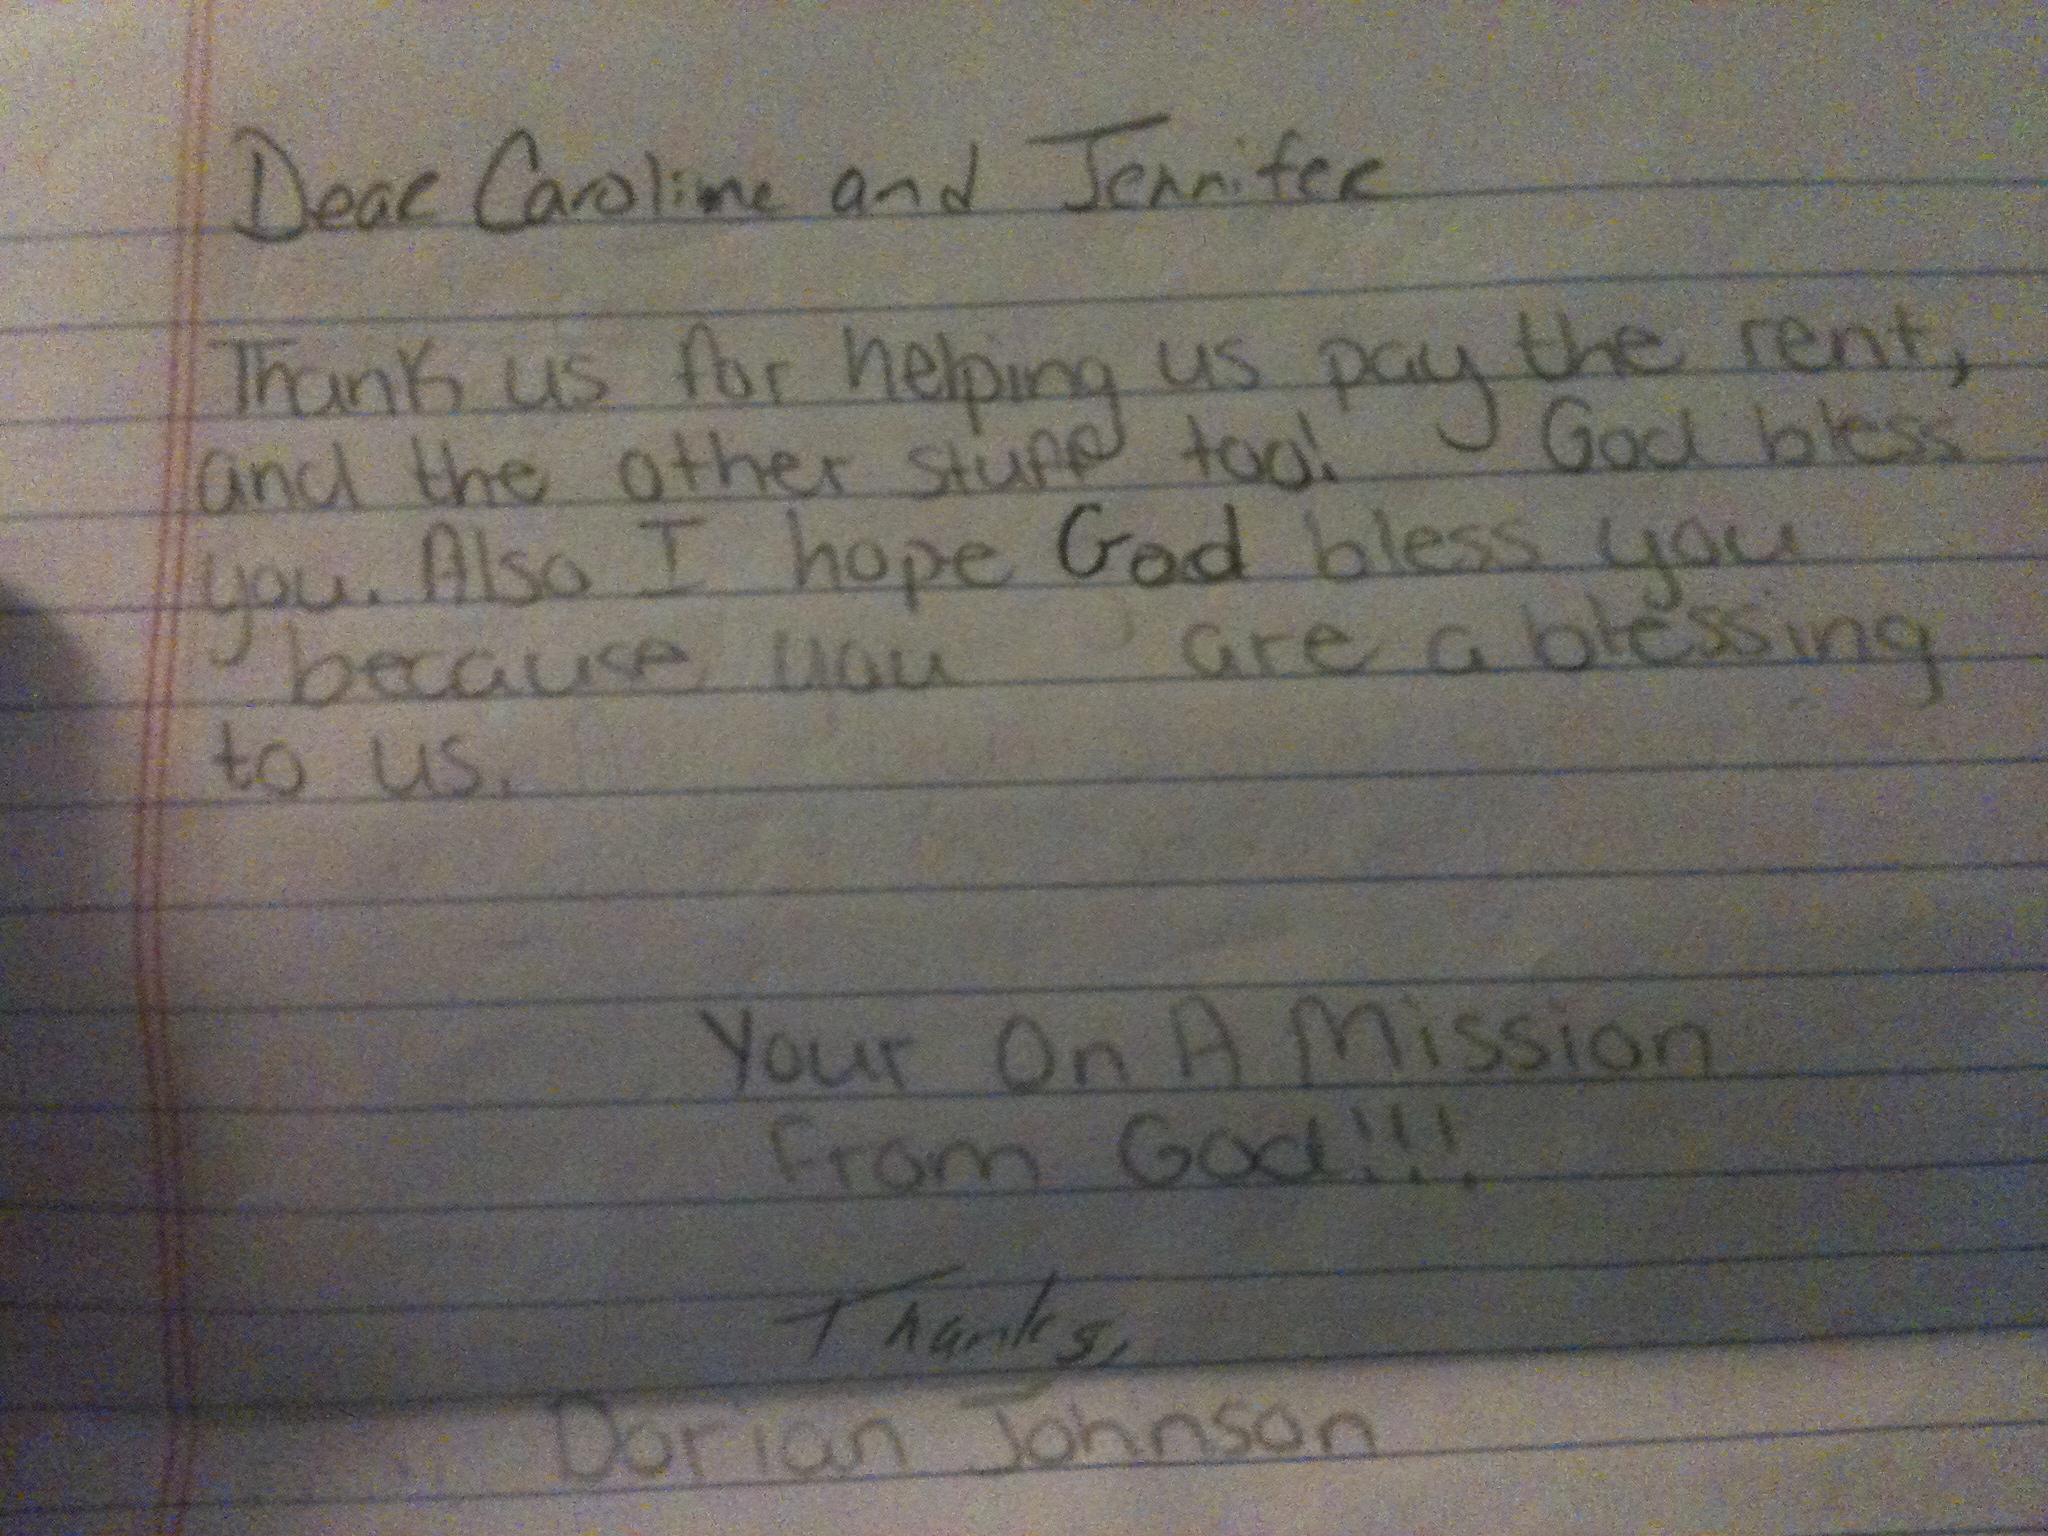 Dear Caroline and Jennifer
Thank us for helping us pay the rent,
and the other stuff too! God bless
you. Also I hope God bless you
because you are a blessing
to us.
Your On A Mission
From God!!!
Thanks,
Dorian Johnson